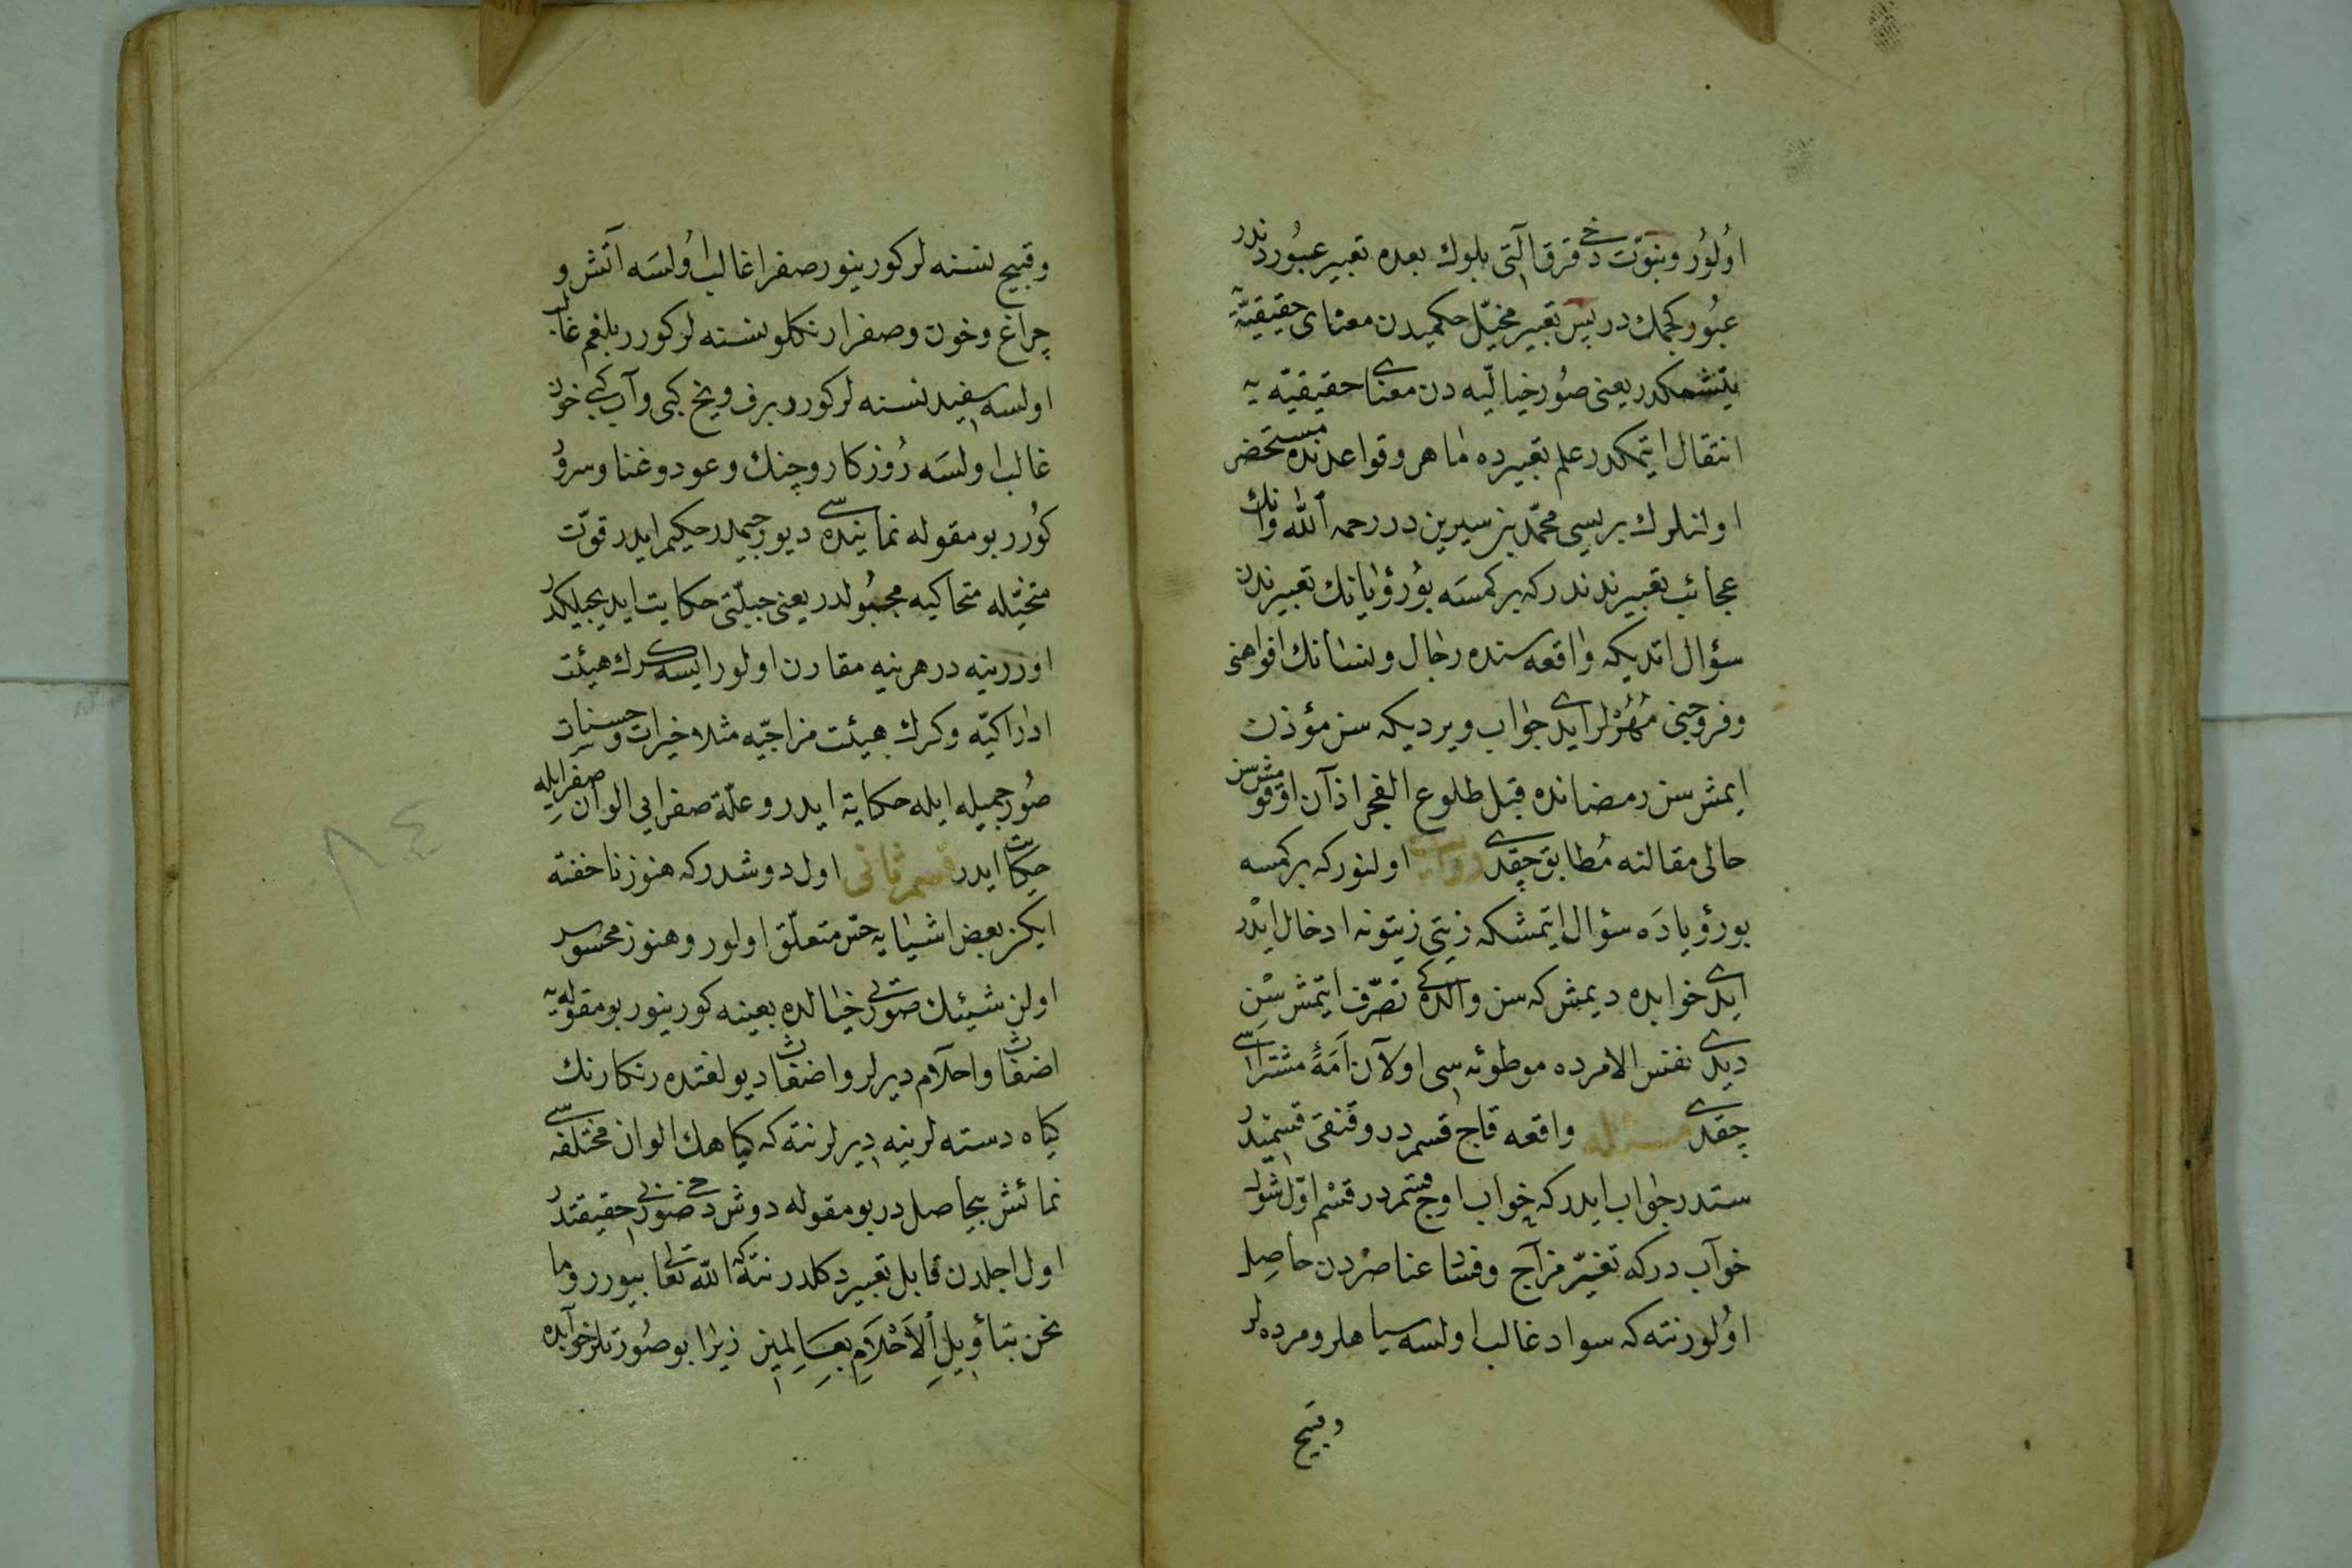 اولور ونبوّت دخی قرق التی بلوك بعده تعبیر عبوردندر
عبور كچمك در پس تعبیر مخیّل حكمیدن معنای حقیقیّه
یتشمكدر یعنی صور خیالیّه دن معنای حقیقیّه یه
انتقال ایتمكدر علم تعبیرده ماهر وقواعدنده مستحضر
اولنلرك بریسی محمّد بن سیرین در رحمه الله وانك
عجائب تعبیرندندر كه بر كمسه بو رؤیانك تعبیرندن
سؤال اتدیكه واقعه سنده رجال ونسانك افواهنی
وفروجنی مُهُرْلر ایدی جواب ویردیكه سن مؤذن
ایمش سن رمضانده قبل طلوع الفجر اذان اوقومش سن
حالی مقالنه مطابق چقدی روایت اولنور كه بر كمسه
بو رؤیاده سؤال ایتمشكه زیتی زیتونه ادخال ایدر
ایدی خوابده دیمش كه سن والدەكی تصرّف ایتمش سن
دیدی نفس الامرده موطوئه سی اولان اَمَهٔ مشتراسی
چقدی مسئله واقعه قاچ قسمدر وقنقی قسمیدر
ستدر جواب ایدر كه خواب اوچ قسمدر قسم اوّل شول
خوابدر كه تغیّر مزاج وفساد عناصردن حاصل
اولور نته كه سوادغالب اولسه سیاهلر ومرده لر
وقبیح
وقبیح نسنه لر كورینور صفرا غالب اولسه آتش و
چراغ وخون وصفرا رنكلو نسنه لر كورر بلغم غالب
اولسه سفید نسنه لر كورر برف ویخ كبی وآب كبی خون
غالب اولسه روزكار وچنك وعود وغنا وسرود
كورر بو مقوله نماینده سی دیو رجیمدر حكیم ایدر قوّت
متخیّله متحاكیه مجبولدر یعنی جبلّتی حكایت ایدیجیلكدر
اوزرینه در هر نیه مقارن اولور ایسه كرك هیئت
ادراكیّه وكرك هیئت مزاجیّه مثلا خیرات وحسنات
صور جمیله ایله حكایة ایدر وعلّة صفرایی الوان صفر ایله
حكایت ایدر قسم ثانی اول دوشدر كه هنوز ناخفته
ایكن بعض اشیایه حس متعلّق اولور وهنوز محسوس
اولن شیئك صورتی خیالده بعینه كورینور بو مقوله یه
اضغاث واحلام دیرلر واضغاث دیو لغتده رنكارنك
كیاه دسته لرینه دیرلر نته كه كیاهك الوان مختلفه سی
نمائش بیحاصل در بو مقوله دوش دخی صورتی حقیقتدر
اول اجلدن قابل تعبیر دكلدر نته كه الله تعالی بیورر وما
نحن بتأویل الاَحْلَامِ بعالمین زیرا بو صورتلر خوابده
٨٤